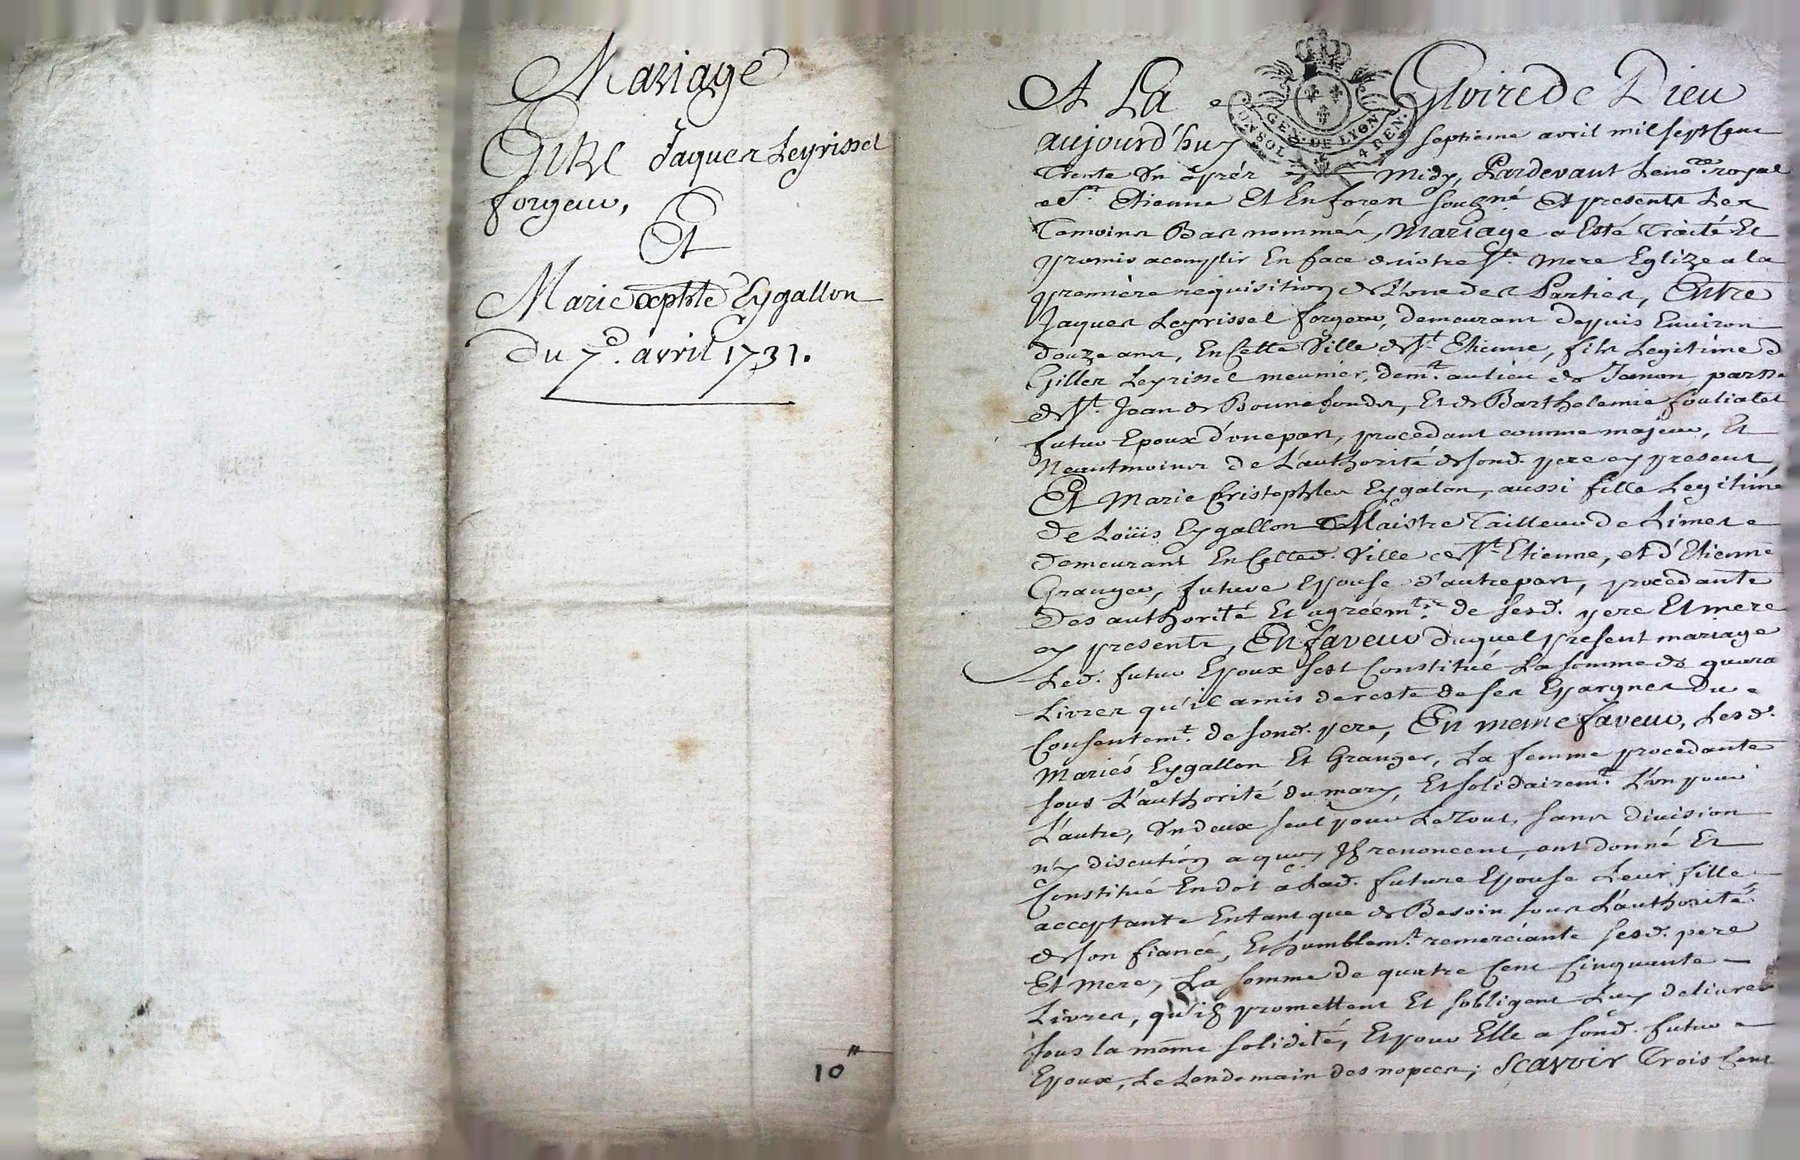 Mariage
Entre Jaques Leyrissel
forgeur,
Et
Marie xophle Eygallon
Du 7e. avril 1731.
10"
A La Gloire de Dieu
GEN. DE LYON
CONSOL 4 DEN.
aujourd'huy septieme avril mil sept Cent
Trente Un aprés Midy, Pardevant Le no.re royal
a St. Etienne Et En foren sousigné Et presents Les
Temoins Bas nommés, Mariage a Esté Traité Et
promis acomplir En face de notre Ste. Mere Eglize a la
premiere requisition de L'une des Parties, Entre
Jaques Leyrissel forgeur, demeurant depuis Environ
douze ans, En Cette Ville de St. Etienne, fils Legitime d
Gilles Leyrissel meunier, demt. au lieu de Janon, parsse
de St. Jean de Bonnefonds, Et de Barthelemie fouliale
futur Epoux d'une part, procedant comme majeur, Et
Neantmoins de L'authorité de sond. pere cy present
Et Marie Cristophles Eygalon, aussi fille Legitime
de Loüis Eygallon Maistre Tailleur de Limes
demeurant En Cetted. Ville de St. Etienne, et d'Etienne
Granger, future Epouse d'autre part, procedante
Des authorité Et agréemts. de sesd. pere Et mere
cy presents, En faveur duquel present mariage
Led. futur Epoux s'est Constitué La somme de quara
Livres qu'il a mis de reste de ses Epargnes Du
Consentemt. de sond. pere, En meme faveur, Lesd.
Mariés Eygallon Et Granger, La femme procedante
sous L'authorité du mary, Et solidairemt. L'un pour
L'autre, Un deux seul pour Le Tout, sans division
n'y discution a quoy Ils renoncent, ont donné Et
Constitué En dot a Lad. future Epouse Leur fille
acceptante En tant que de Besoin sous L'authorité
de son fiancé, Et humblemt. remerciante sesd. pere
Et Mere, La somme de quatre Cent Cinquante
Livres, qu'ils promettent Et s'obligent Luy delivrer
sous la même solidité, Et pour Elle a sond. futur
Epoux, Le Lendemain des nopces; Scavoir Trois Cent